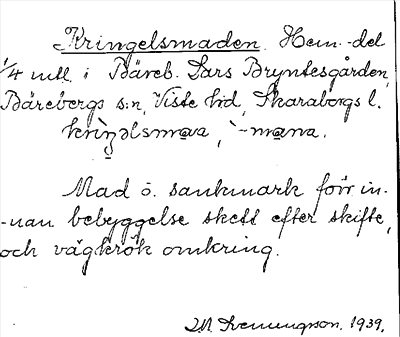 Kringelsmaden. Hem.-del
1/4 mtl. i Bäreb. Lars Bryntesgården,
Bärebergs s:n, Viste hd, Skaraborgs l.
Mad o. sankmark förr in-
-nan bebyggelse skett efter skifte,
och vägkrök omkring.
1939.